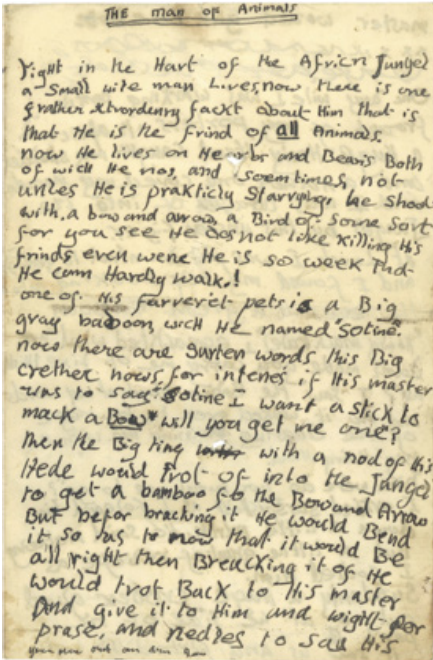 THE man of Animals
right in the Hart of the Africn Jungel
a Small wite man Lives, now there is one
frather xtrordenry fackt about Him that is
that He is the frind of all Animals.
now He lives on Hearbs and Bearis Both
of wich He nos, and soemtimes, not
unles He is prakticly Starvying, he Shoot
with, a bow and arrow, a Bird of Some Sort
for you see He dos not like Killing His
frinds even wene He is so week that
He cann Hardly walk!
one of His farveret pets is a Big
gray baboon, wich He named "Sotine".
now there are surten words this Big
crether nows, for intens if His master
was to say "Sotine I want a stick to
mack a Bow" will you get me one?
then the Big ting with a nod of His
Hede would trot of into the Jungel
to get a bamboo fo the Bow and Arrow
But befor bracking it He would Bend
it so as to now that it would Be
all right then Breacking it of He
would trot Back to His master
and give it to Him and wight for
prase, and nedles to say His